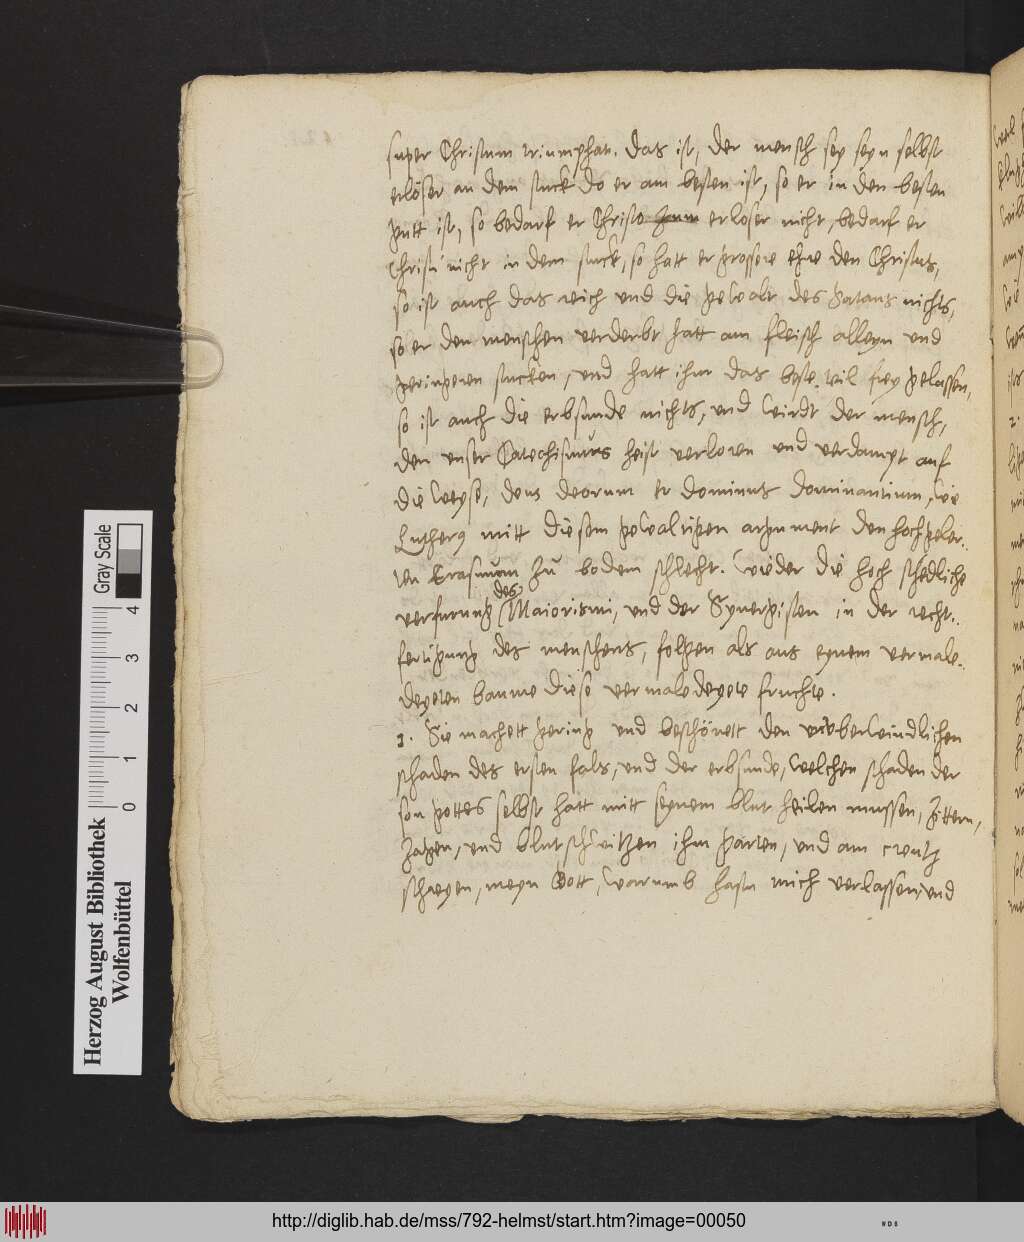 super Christum triumphat. Das ist, der mensch sey seyn selbst
erlöser an dem stuck do er am besten ist, so er in den besten
gutt ist, so bedarf er Christo zum erloser nicht, bedarf er
Christi nicht in dem stuck, so hatt er grossere ehre den Christus,
so ist auch das reich und die gewalt des Satans nichts,
so er den menschen verderbt hatt am fleisch alleyn und
geringeren stucken, und hatt ihm das beste. wil frey gelassen,
so ist auch die erbsunde nichts, und wirdt der mensch,
den unser Catechismus heist verloren und verdampt auf
die weyse, deus deorum et dominus dominantium, wie
Lutherus mitt diesem gewaltigen argument den hochgeler-
ten Erasmum zu bodem schlecht. Wieder die hoch schedliche
verfurung des Maiorismi, und der Synergisten in der recht-
fertigung des menschens, folgen als aus eynem vermale-
deyeten baume diese vermaledeyete fruchte.
1. Sie machett gering und beschönett den unuberwindlichen
schaden des ersten fals, und der erbsunde, welchen schaden der
son gottes selbst hatt mitt seynem blut heilen mussen, Zittern,
Zagen, und blut schwitzen ihm garten, und am creutz
schreyen, meyn Gott, warumb hastu mich verlassen, und
Herzog August Bibliothek
Wolfenbüttel
Gray Scale
0 1 2 3 4
http://diglib.hab.de/mss/792-helmst/start.htm?image=00050